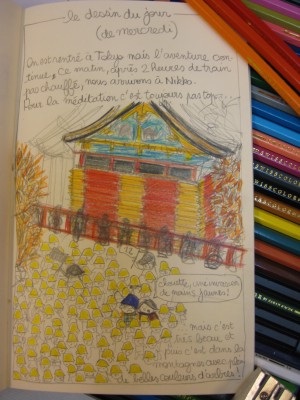 - le dessin du jour
(de mercredi)
On est rentré à Tokyo mais l'aventure con-
tinue. Ce matin, après 2 heures de train
pas chauffé, nous arrivons à Nikko.
Pour la méditation c'est toujours pas top...
Chouette, une mer de
de mains jaunes!
mais c'est
très beau, et
puis c'est dans les
montagnes avec plein
de belles couleurs d'arbres!